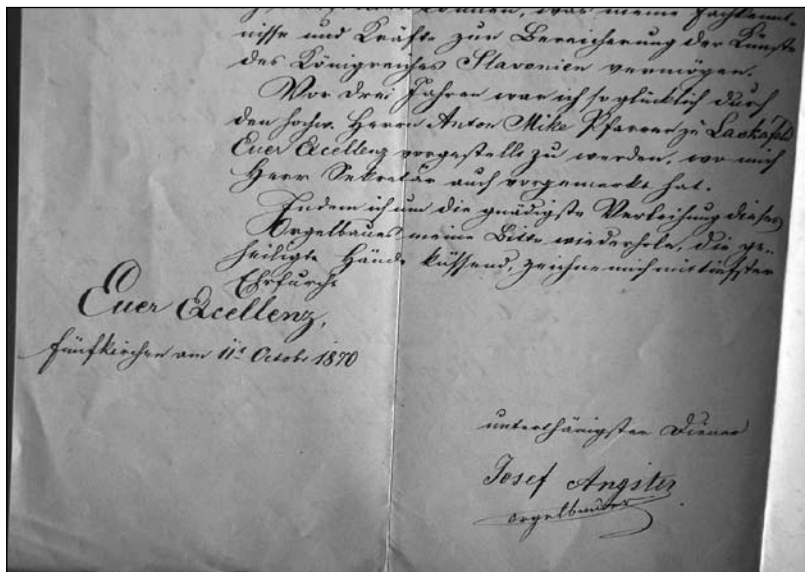 können, was meine Fachkennt-
nisse und Kräfte zur Bereicherung der Künste
des Königreiches Slavonien vermögen.
Vor drei Jahren war ich so glücklich durch
den hochw. Herrn Anton Mike Pfarrer zu Laskafeld
Euer Excellenz vorgestellt zu werden, wo mich
Herr Sekretär auch vorgemerkt hat.
Indem ich um die gnädigste Verleihung dieses
Orgelbaues meine Bitte wiederhole, die ge-
heiligte Hände küssend, zeichne mich mit tiefster
Ehrfurcht
Euer Excellenz,
Fünfkirchen am 11t October 1870
unterthänigster Diener
Josef Angster
Orgelbauer